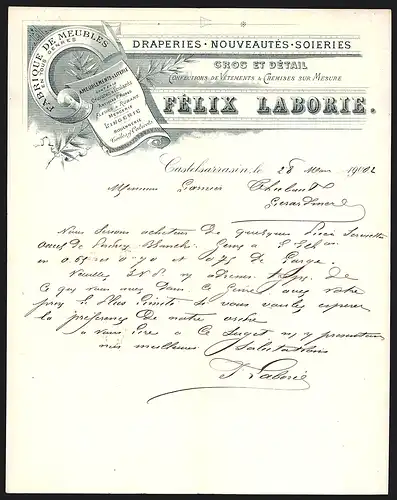 FABRIQUE DE MEUBLES
EN TOUS GENRES
AMEUBLEMENTS & LITERIE
MERCERIE
LINGERIE
DRAPERIES · NOUVEAUTÉS · SOIERIES
GROS ET DÉTAIL
CONFECTIONS DE VÊTEMENTS & CHEMISES SUR MESURE
FÉLIX LABORIE.
Castelsarrasin, le 28 Mars 1902
Monsieur Garnier Thiebaut
Gerardmer
Nous serions acheteur de quelques pièces Serviette
genre
en 0.65 et 0.70 et 0.75 de large.
Veuillez S.V.P. m'y adresser de
ce que vous avez dans ce genre avec votre
prix le plus limité si vous voulez espérer
la préférence de notre ordre
à vous lire à ce sujet
mes meilleures Salutations
F Laborie